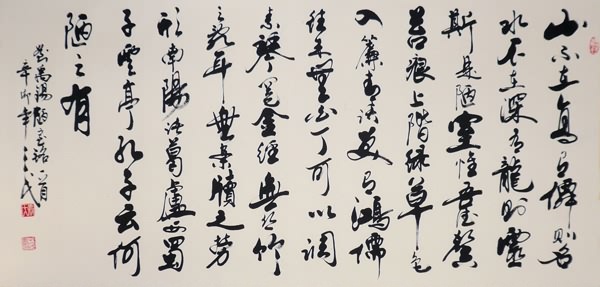 山不在高有僊则名
水不在深有龍则靈
斯是陋室惟吾德馨
苔痕上階緑草色
入簾青談笑有鴻儒
往来無白丁可以調
素琴閲金經無絲竹
之亂耳無案牘之勞
形南陽諸葛廬西蜀
子雲亭孔子云何
陋之有
劉禹錫陋室銘一首
辛卯年